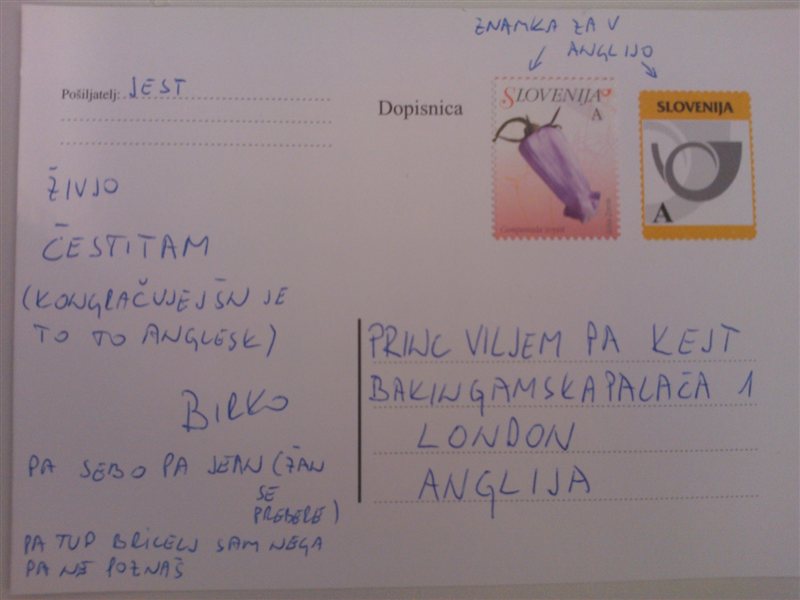 ZNAMKA ZA V
ANGLIJO
Pošiljatelj: JEST
Dopisnica
SLOVENIJA
A
SLOVENIJA
A
ŽIVJO
ČESTITAM
(KONGRAČUJEJŠN JE
TO TO ANGLESK)
BIRKO
PA SEBO PA JEAN (ŽAN
SE
PREBERE)
PA TUD BRICELJ SAM NEGA
PA NE POZNAŠ
PRINC VILJEM PA KEJT
BAKINGAMSKA PALAČA 1
LONDON
ANGLIJA